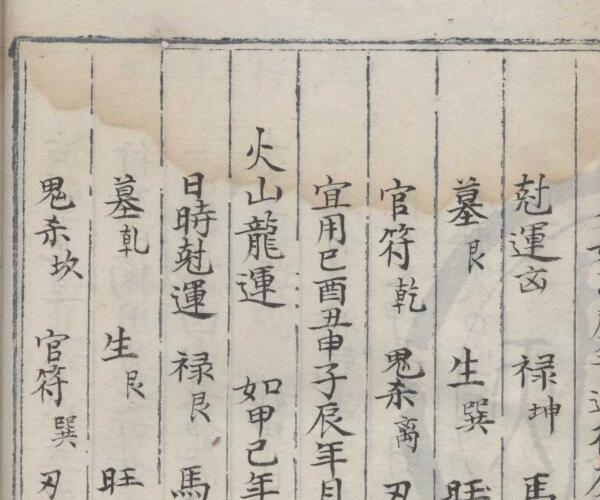 尅運 禄坤 馬
墓艮 生巽 旺
官符乾 鬼杀离 刃
宜用巳酉丑申子辰年月
火山龍運 如甲己年
日時尅運 禄艮 馬
墓乹 生艮 旺
鬼杀坎 官符巽 刃